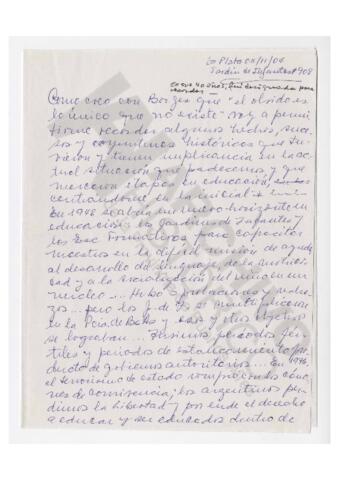 La Plata 02/11/06
Jardín de Infantes 908
Como creo con Borges que "el olvido es
lo único que no existe" voy a permi
tirme recordar algunos hechos, suce
sos y coyunturas históricas que tu
vieron y tienen implicancia en la ac
tual situación que padecemos, y que
merecieron etapas en educación,
centrándome en la inicial
En 1948 se abría un nuevo horizonte en
educación: los Jardines de Infantes y
los Esc. Formativos para capacitar
maestros en la difícil misión de ayuda
al desarrollo del lenguaje, de la motrici
dad y a la socialización del niño en un
núcleo... Hubo aprobaciones y recha
zos... pero los J. de I. se multiplicaron
en la Pcia. de Bs As y esos y otros objetivos
se lograban... Tuvimos períodos fér
tiles y períodos de estancamiento pro
ducto de gobiernos autoritarios... En 1976
el terrorismo de estado
de convivencia; los argentinos per
dimos la libertad y por ende el derecho
a educar y ser educados dentro de